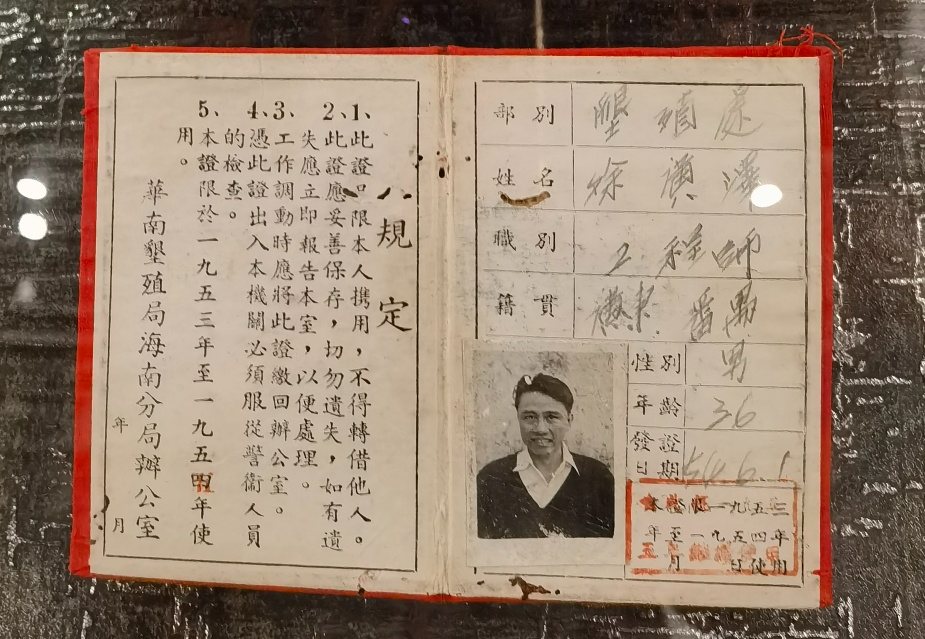 規定
1、此證只限本人携用，不得轉借他人。
2、此證應妥善保存，切勿遺失，如有遺
失應立即報告本室，以便處理。
3、工作調動時應將此證繳回辦公室。
4、憑此證出入本機關必須服從警衞人員
的檢查。
5、本證限於一九五三年至一九五四年使
用。
華南墾殖局海南分局辦公室
年 月
部別 墾殖處
姓名
職別 工程師
籍貫 番禺
性別 男
年齡 36
發證
日期 54.6.1
一九五三
年至一九五四年
月 日使用